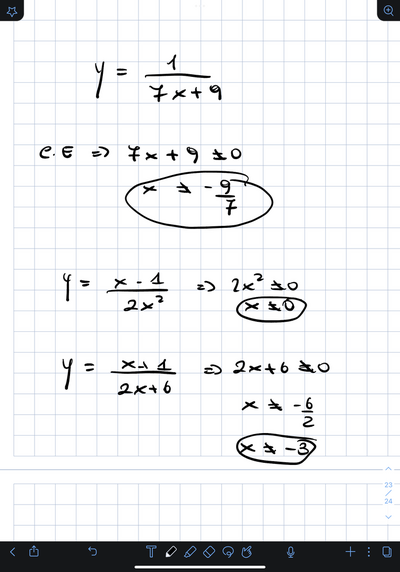 y = 1/(7x+9)
C.E => 7x+9 ≠ 0
x ≠ -9/7
y = (x-1)/(2x²) => 2x² ≠ 0
x ≠ 0
y = (x-1)/(2x+6) => 2x+6 ≠ 0
x ≠ -6/2
x ≠ -3
23
/
24
T